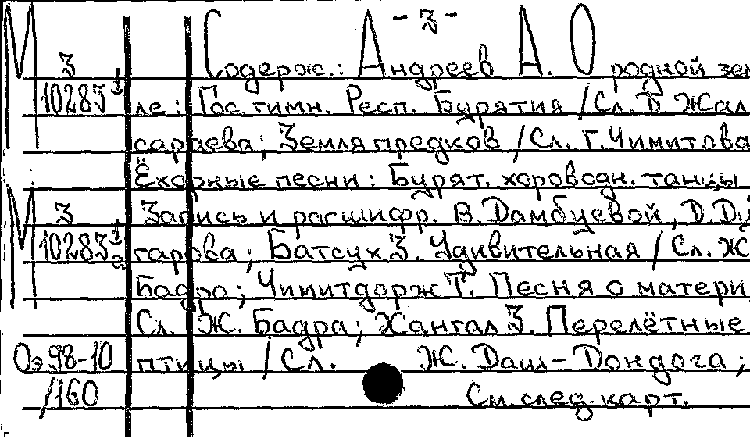 - 3 -
М 3 Содерж.: Андреев А. О родной зем
10283 ле: Гос. гимн. Респ. Бурятия / Сл. Д. Жал
сараева; Земля предков / Сл. Г. Чимитова
Ёхорные песни: Бурят. хороводн. танцы
М 3 Запись и расшифр. В. Дамбуевой, Д. Ду
10283 гарова; Батсух З. Удивительная / Сл. Ж
Бадра; Чимитдорж Т. Песня о матери
Сл. Ж. Бадра; Хангал З. Перелётные
Оэ98-10 птицы / Сл. Ж. Даш-Дондога;
/160 См. след. карт.